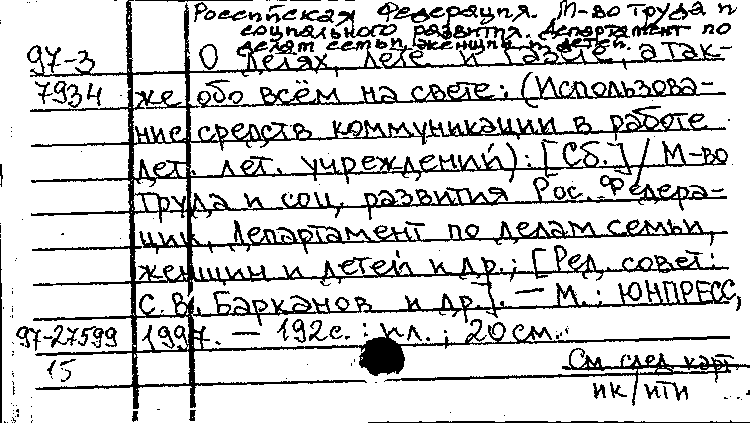 Российская Федерация. М-во труда и
социального развития. Департамент по
делам семьи, женщин и детей.
97-3 О делах, лете и газете, а так-
7934 же обо всём на свете: (Использова-
ние средств коммуникации в работе
дет. лет. учреждений): [Сб.] / М-во
труда и соц. развития Рос. Федера-
ции, Департамент по делам семьи,
женщин и детей и др.; [Ред. совет:
С.В. Барканов и др.]. — М.: ЮНПРЕСС,
97-27599 1997. — 192с.: ил.; 20см.
15 См след карт.
ик/ити